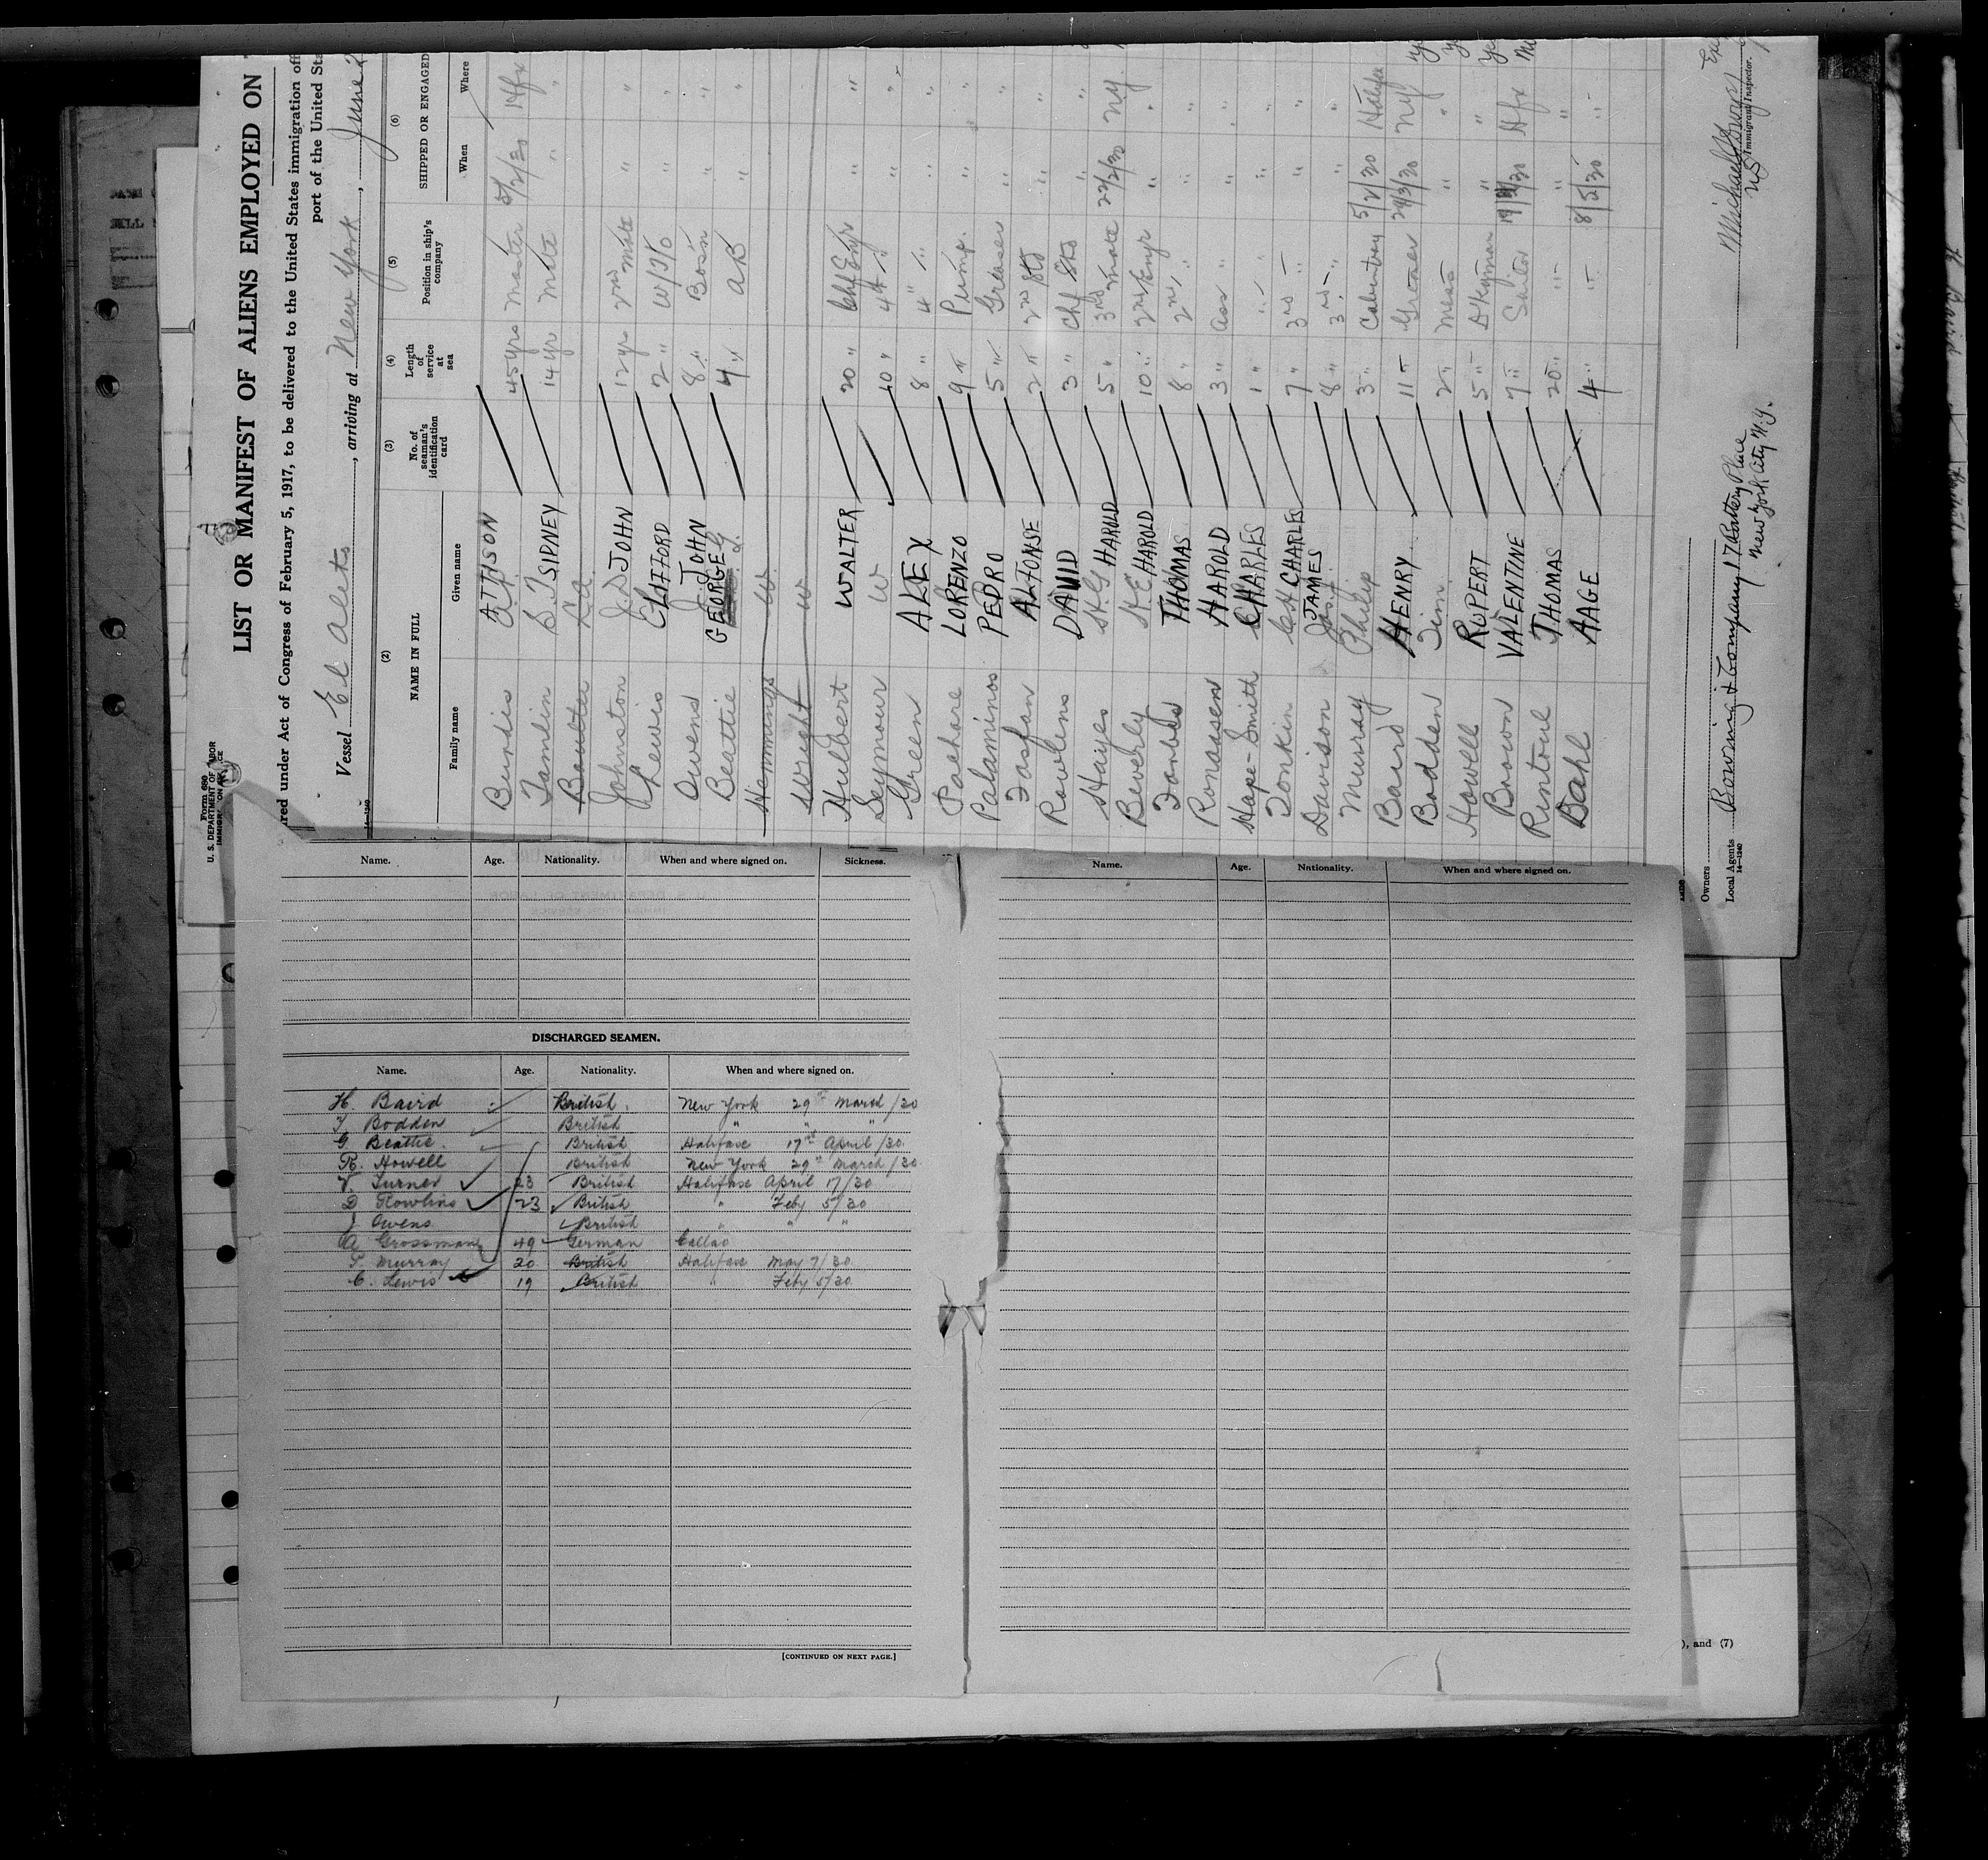 Form 680
U. S. DEPARTMENT OF LABOR
LIST OR MANIFEST OF ALIENS EMPLOYED ON
red under Act of Congress of February 5, 1917, to be delivered to the United States immigration off
port of the United Sta
Vessel El Aleto, arriving at New York, June 2
(2) (3) (4) (5) (6)
NAME IN FULL
No. of seaman's identification card
Length of service at sea
Position in ship's company
SHIPPED OR ENGAGED
Family name Given name When Where
Burdis ATTISSON 45 yrs Master 5/2/30 Hfx
Tamlin S. T SIDNEY 14 yr Mate " "
Boulter
Johnston J. S JOHN 12 yrs 2nd Mate " "
Lewis CLIFFORD 2 " W/T/O " "
Owens J. JOHN 8 " Bosn " "
Beattie GEORGE G. 4 " AB " "
Hemmings W
Wright W
Hulbert WALTER 20 " Chf Engr " "
Seymour W 10 " 4th " " "
Green ALEX 8 " 4 " " "
Paehare LORENZO 9 " Pump. " "
Palaminos PEDRO 5 " Greaser " "
Fasfan ALFONSE 2 " 2nd Std " "
Rowlins DAVID 3 " Chf Std " "
Hayes H G HAROLD 5 " 3rd Mate 22/2/30 NY.
Beverly H E HAROLD 10 " 2nd Engr " "
Forbes THOMAS 8 " 2nd " " "
Ronaasen HAROLD 3 " Ass " " "
Hape-Smith CHARLES 1 " " " "
Tonkin C H CHARLES 7 " 3rd " " "
Davison Jas. JAMES 8 " 3rd " " "
Murray Philip 3 " Cabinboy 5/2/30 Halifax
Baird HENRY 11 " Greaser 29/3/30 NY
Bodden Tim 2 " Mess " "
Howell RUPERT 5 " D'Keyman " "
Brown VALENTINE 7 " Sailor 19/2/30 Hfx
Rintoul THOMAS 20 " " " "
Dahl AAGE 4 " " 8/5/30 "
Immigrant Inspector.
Owners
Local Agents Bowring & Company 17 Battery Place
New York City N.Y.
14—1240
Name. Age. Nationality. When and where signed on. Sickness.
Name. Age. Nationality. When and where signed on.
DISCHARGED SEAMEN.
Name. Age. Nationality. When and where signed on.
H. Baird British New York 29th March /30
T. Bodden British " " "
G. Beattie British Halifax 17th April /30.
R. Howell British New York 29th March /30.
V. Turner 23 British Halifax April 17/30
D Rowlins 23 British " Feby 5/30
J Owens British " " "
A Grossmann 49 German Callao
P. Murray 20 British Halifax May 7/30
C. Lewis 19 British " Feby 5/30
[CONTINUED ON NEXT PAGE.]
), and (7)